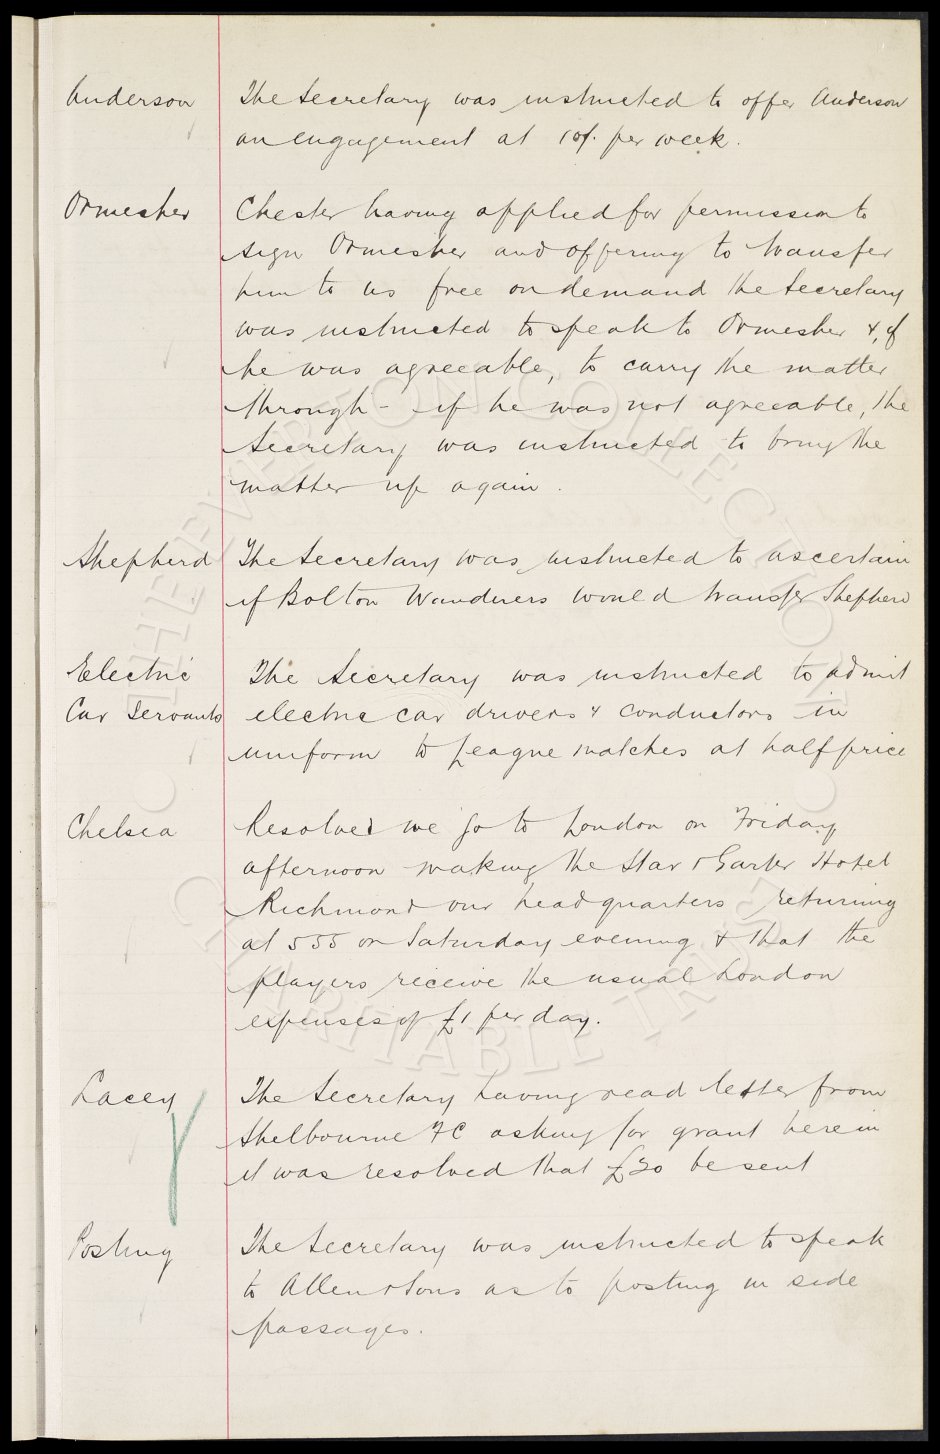 Anderson The Secretary was instructed to offer Anderson
an engagement at 10/- per week.
Ormesher Chester having applied for permission to
sign Ormesher and offering to transfer
him to us free on demand the Secretary
was instructed to speak to Ormesher &, if
he was agreeable, to carry the matter
through - if he was not agreeable, the
Secretary was instructed to bring the
matter up again.
Shepherd The Secretary was instructed to ascertain
if Bolton Wanderers would transfer Shepherd
Electric The Secretary was instructed to admit
Car Servants electric car drivers & conductors in
uniform to League matches at half price
Chelsea Resolved we go to London on Friday
afternoon making the Star & Garter Hotel
Richmond our headquarters returning
at 5 55 on Saturday evening & that the
players receive the usual London
expenses of £1 per day.
Lacey The Secretary having read letter from
Shelbourne FC asking for grant herein
it was resolved that £50 be sent
Posting The Secretary was instructed to speak
to Allen & Sons as to posting in side
passages.
THE EVERTON COLLECTION
CHARITABLE TRUST